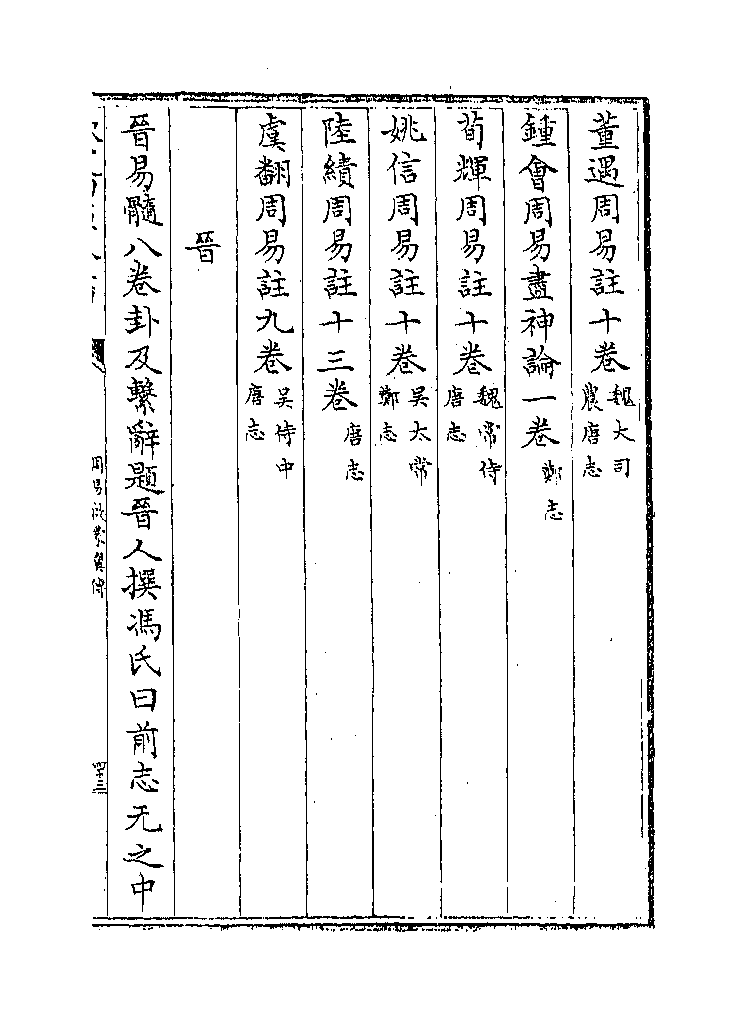 董遇周易註十卷魏大司農唐志
鍾會周易盡神論一卷鄭志
荀輝周易註十卷魏常侍唐志
姚信周易註十卷吳太常鄭志
陸績周易註十三卷唐志
虞翻周易註九卷吳侍中唐志
晉
晉易髓八卷卦及繫辭題晉人撰馮氏曰前志无之中
周易啟蒙翼傳
四十三